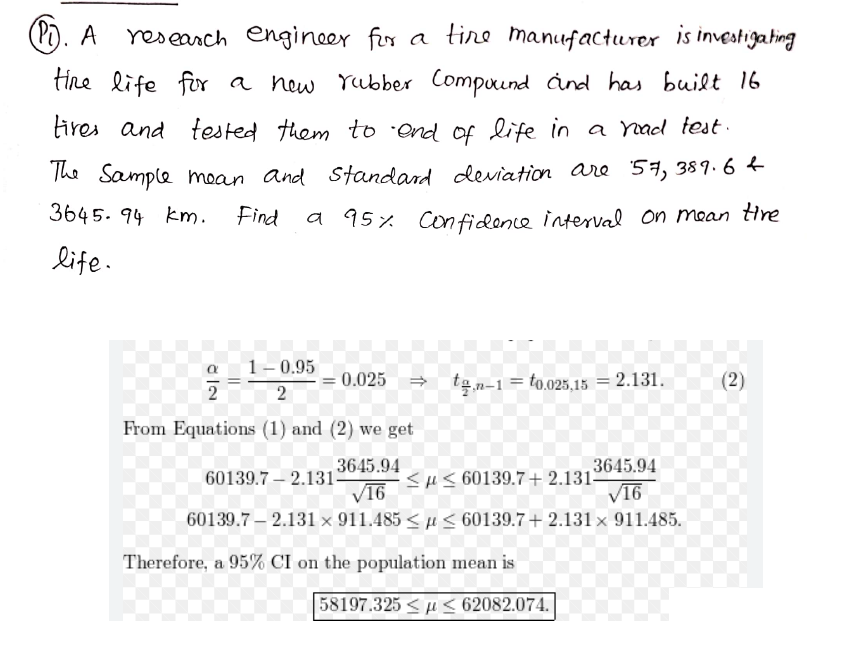 (P1). A research engineer for a tire manufacturer is investigating
tire life for a new rubber Compound and has built 16
tires and tested them to end of life in a road test.
The Sample mean and Standard deviation are 57,389.6 &
3645.94 km. Find a 95% Confidence interval on mean tire
life.
α/2 = (1 − 0.95)/2 = 0.025 ⇒ t_{α/2,n−1} = t_{0.025,15} = 2.131. (2)
From Equations (1) and (2) we get
60139.7 − 2.131 3645.94/√16 ≤ μ ≤ 60139.7 + 2.131 3645.94/√16
60139.7 − 2.131 × 911.485 ≤ μ ≤ 60139.7 + 2.131 × 911.485.
Therefore, a 95% CI on the population mean is
58197.325 ≤ μ ≤ 62082.074.